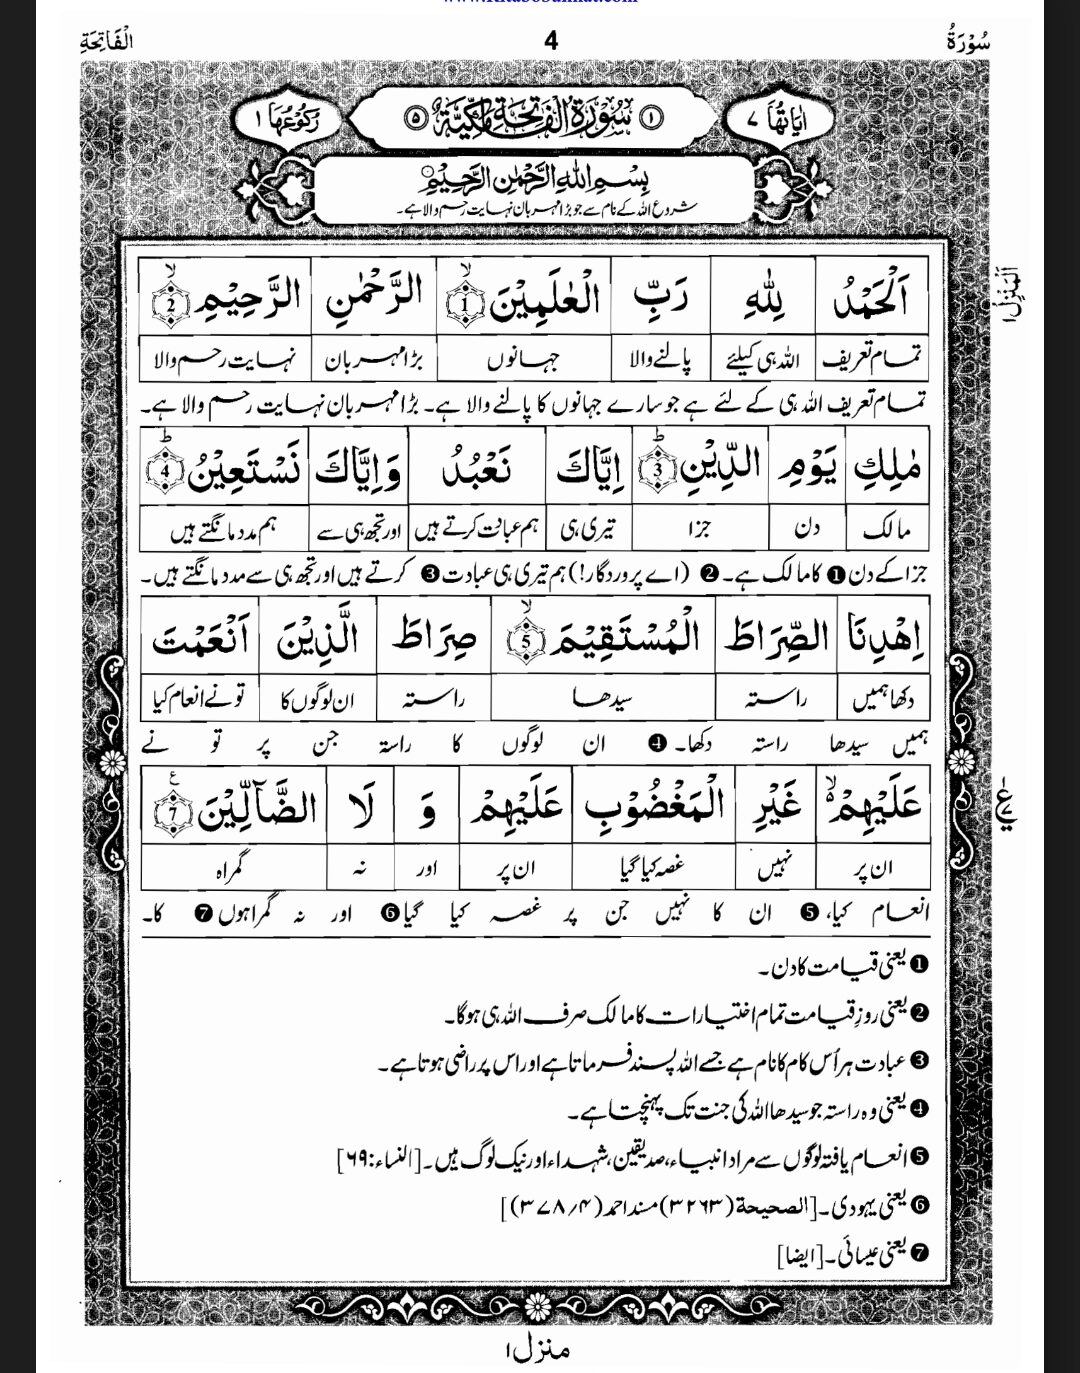 www.KitaboSunnat.com
سُوْرَةُ 4 الْفَاتِحَةِ
اٰيَاتُهَا ٧ ١ سُوْرَةُ الْفَاتِحَةِ مَكِّيَّةٌ ٥ رُكُوْعُهَا ١
بِسْمِ اللّٰهِ الرَّحْمٰنِ الرَّحِيْمِ
شروع اللہ کے نام سے جو بڑا مہربان نہایت رحم والا ہے۔
اَلْحَمْدُ لِلّٰهِ رَبِّ الْعٰلَمِيْنَ ۙ 1 الرَّحْمٰنِ الرَّحِيْمِ ۙ 2
المنزل ١
تمام تعریف اللہ ہی کیلئے پالنے والا جہانوں بڑا مہربان نہایت رحم والا
تمام تعریف اللہ ہی کے لئے ہے جو سارے جہانوں کا پالنے والا ہے۔ بڑا مہربان نہایت رحم والا ہے۔
مٰلِكِ يَوْمِ الدِّيْنِ ؕ 3 اِيَّاكَ نَعْبُدُ وَاِيَّاكَ نَسْتَعِيْنُ ؕ 4
مالک دن جزا تیری ہی ہم عبادت کرتے ہیں اور تجھ ہی سے ہم مدد مانگتے ہیں
جزا کے دن ❶ کا مالک ہے۔ ❷ (اے پروردگار!) ہم تیری ہی عبادت ❸ کرتے ہیں اور تجھ ہی سے مدد مانگتے ہیں۔
اِهْدِنَا الصِّرَاطَ الْمُسْتَقِيْمَ ۙ 5 صِرَاطَ الَّذِيْنَ اَنْعَمْتَ
دکھا ہمیں راستہ سیدھا راستہ ان لوگوں کا تو نے انعام کیا
ہمیں سیدھا راستہ دکھا۔ ❹ ان لوگوں کا راستہ جن پر تو نے
عَلَيْهِمْ ۙ۬ غَيْرِ الْمَغْضُوْبِ عَلَيْهِمْ وَ لَا الضَّآلِّيْنَ ۧ 7
ان پر نہیں غصہ کیا گیا ان پر اور نہ گمراہ
انعام کیا، ❺ ان کا نہیں جن پر غصہ کیا گیا ❻ اور نہ گمراہوں ❼ کا۔
❶ یعنی قیامت کا دن۔
❷ یعنی روزِ قیامت تمام اختیارات کا مالک صرف اللہ ہی ہوگا۔
❸ عبادت ہر اُس کام کا نام ہے جسے اللہ پسند فرماتا ہے اور اس پر راضی ہوتا ہے۔
❹ یعنی وہ راستہ جو سیدھا اللہ کی جنت تک پہنچتا ہے۔
❺ انعام یافتہ لوگوں سے مراد انبیاء، صدیقین، شہداء اور نیک لوگ ہیں۔ [النساء: ٦٩]
❻ یعنی یہودی۔ [الصحیحة (٣٢٦٣) مسند احمد (٣٧٨/٤)]
❼ یعنی عیسائی۔ [ایضا]
منزل ١